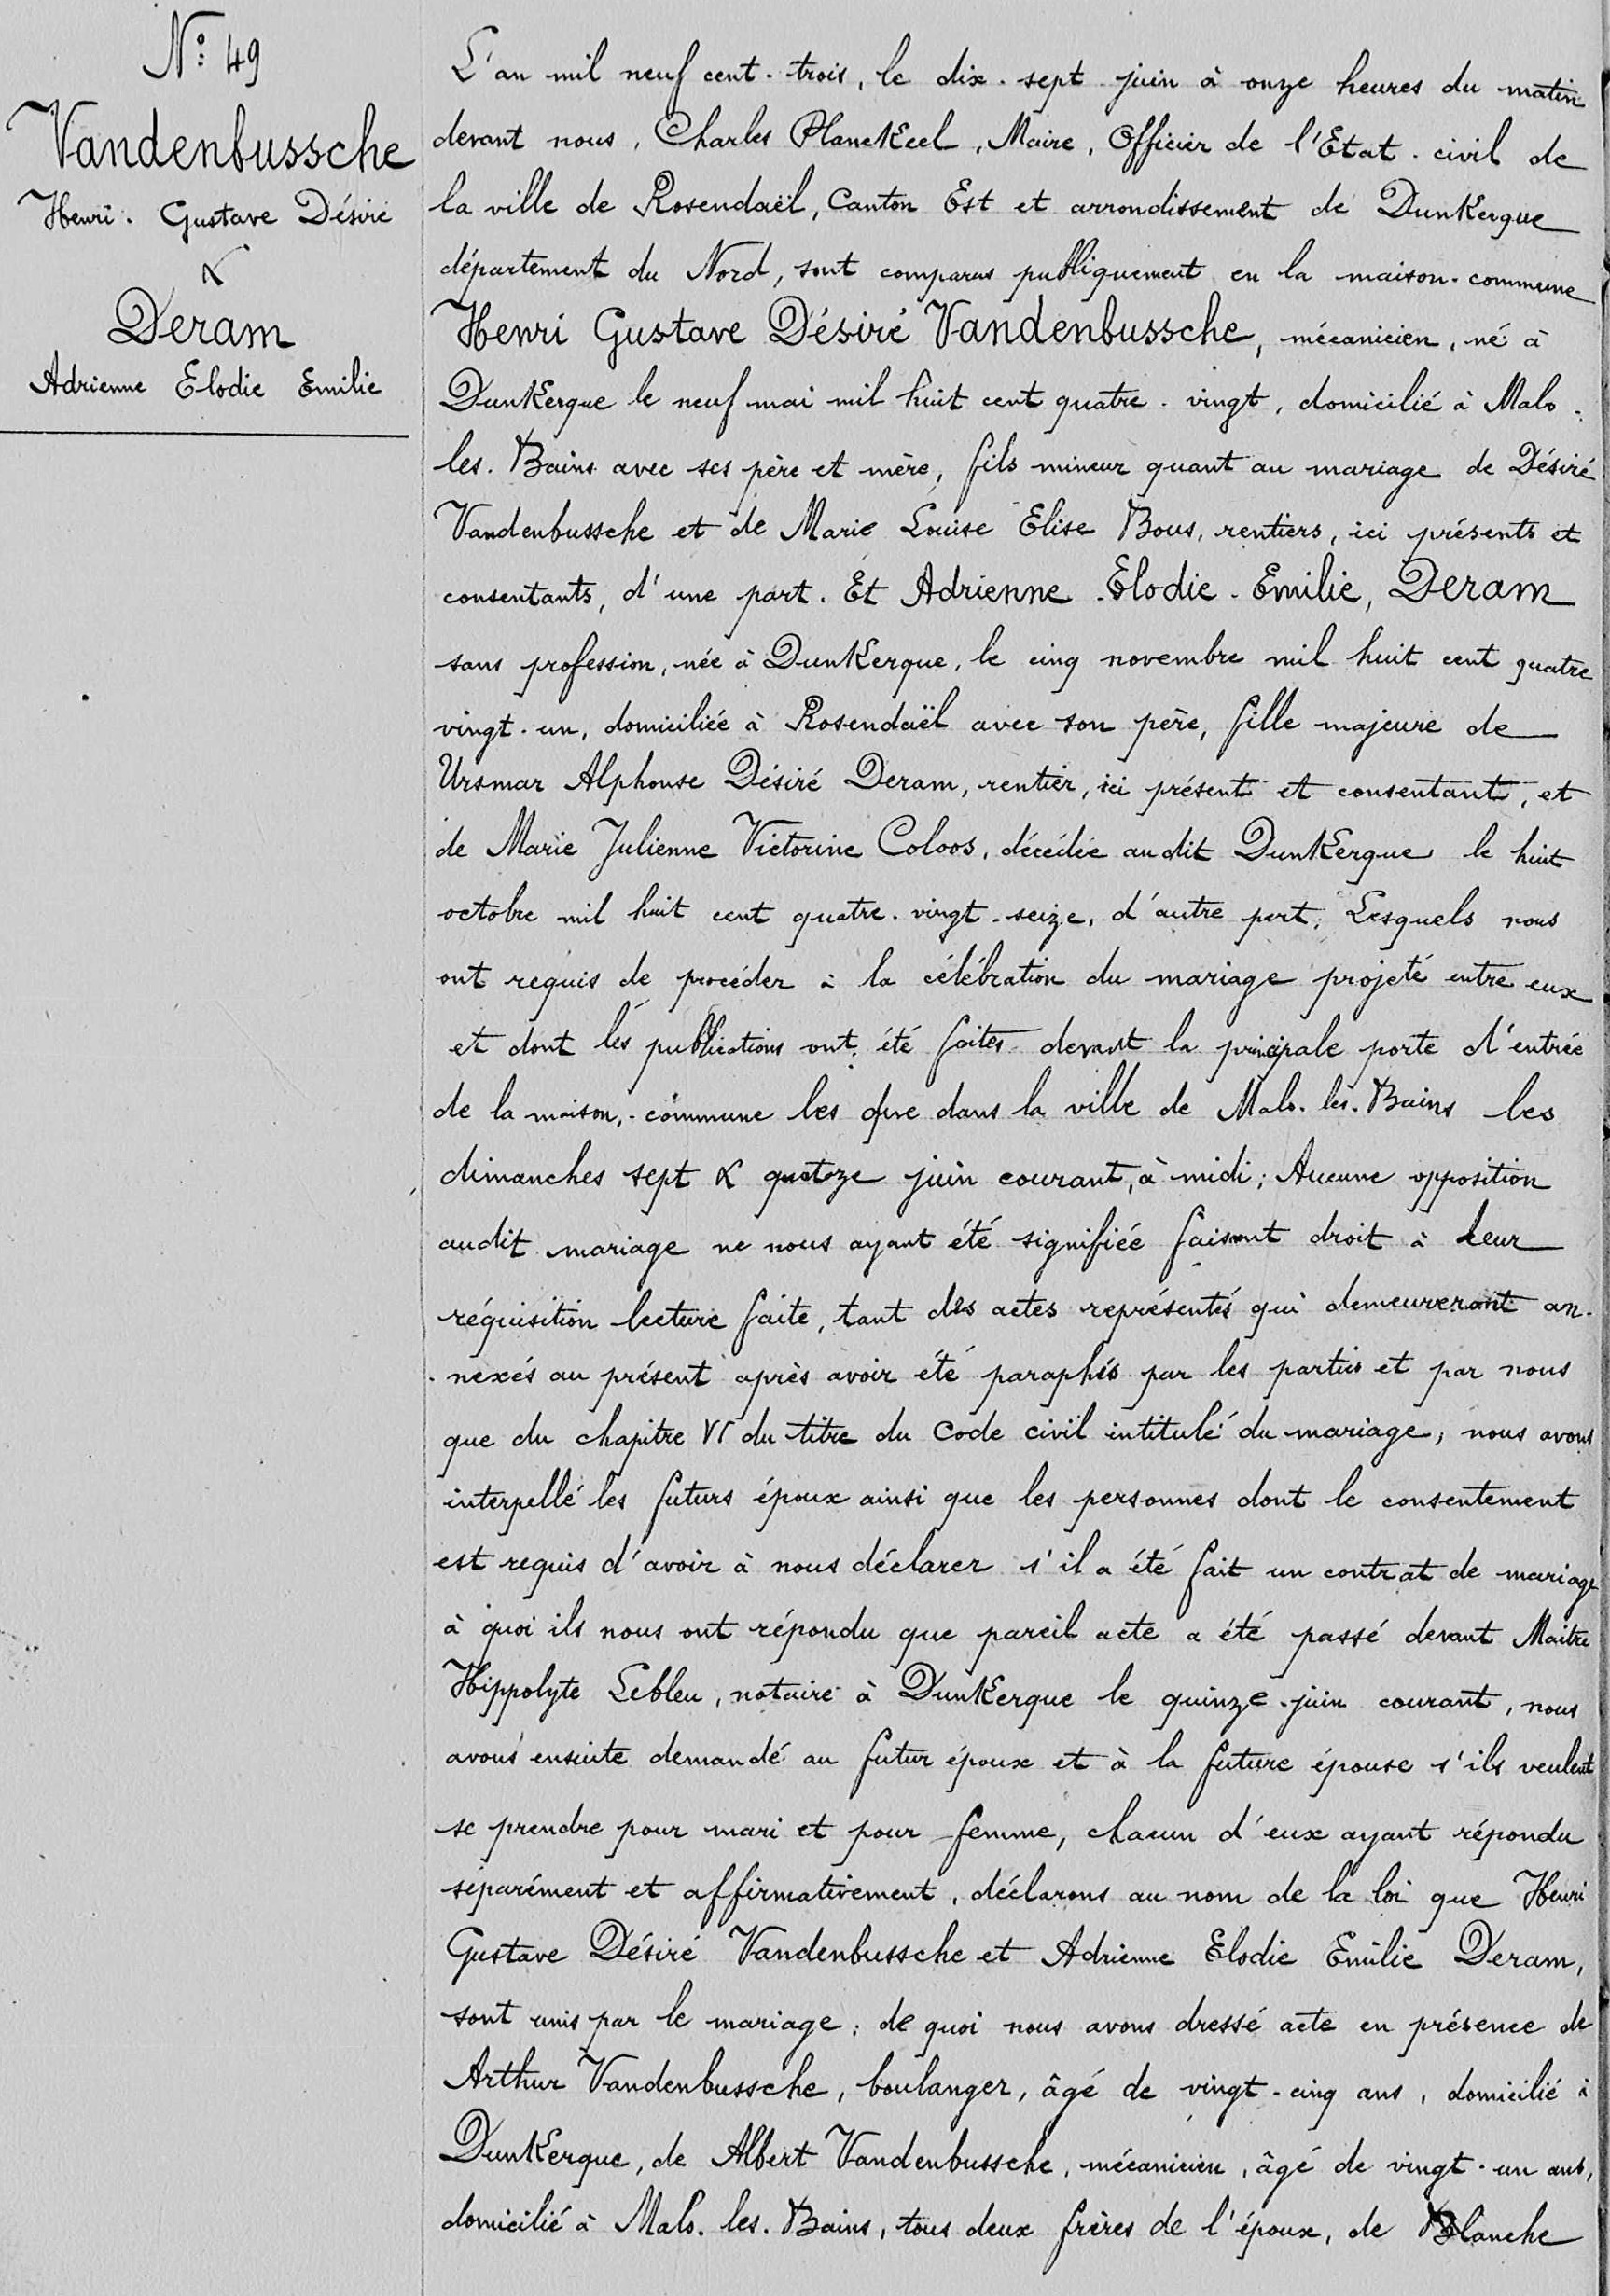 N°: 49
Vandenbussche
Henri. Gustave Désiré
&
Deram
Adrienne Elodie Emilie
L'an mil neuf cent-trois, le dix-sept juin à onze heures du matin
devant nous, Charles Planckeel, Maire, Officier de l'Etat-civil de
la ville de Rosendaël, Canton Est et arrondissement de Dunkerque
département du Nord, sont comparus publiquement en la maison-commune
Henri Gustave Désiré Vandenbussche, mécanicien, né à
Dunkerque le neuf mai mil huit cent quatre-vingt, domicilié à Malo-
les-Bains avec ses père et mère, fils mineur quant au mariage de Désiré
Vandenbussche et de Marie Louise Elise Bous, rentiers, ici présents et
consentants, d'une part. Et Adrienne Elodie-Emilie, Deram
sans profession, née à Dunkerque, le cinq novembre mil huit cent quatre
vingt-un, domiciliée à Rosendaël avec son père, fille majeure de
Ursmar Alphonse Désiré Deram, rentier, ici présent et consentant, et
de Marie Julienne Victorine Coloos, décédée audit Dunkerque le huit
octobre mil huit cent quatre-vingt-seize, d'autre part; Lesquels nous
ont requis de procéder à la célébration du mariage projeté entre eux
et dont les publications ont été faites devant la principale porte d'entrée
de la maison,-commune les que dans la ville de Malo-les-Bains les
dimanches sept & quatoze juin courant, à midi; Aucune opposition
audit mariage ne nous ayant été signifiée faisant droit à leur
réquisition lecture faite, tant des actes représentés qui demeureront an-
-nexés au présent après avoir été paraphés par les parties et par nous
que du chapitre VI du titre du Code civil intitulé du mariage, nous avons
interpellé les futurs époux ainsi que les personnes dont le consentement
est requis d'avoir à nous déclarer s'il a été fait un contrat de mariage
à quoi ils nous ont répondu que pareil acte a été passé devant Maitre
Hippolyte Lebleu, notaire à Dunkerque le quinze-juin courant, nous
avons ensuite demandé au futur époux et à la future épouse s'ils veulent
se prendre pour mari et pour femme, chacun d'eux ayant répondu
séparément et affirmativement, déclarons au nom de la loi que Henri
Gustave Désiré Vandenbussche et Adrienne Elodie Emilie Deram,
sont unis par le mariage: de quoi nous avons dressé acte en présence de
Arthur Vandenbussche, boulanger, âgé de vingt-cinq ans, domicilié à
Dunkerque, de Albert Vandenbussche, mécanicien, âgé de vingt-un ans,
domicilié à Malo-les-Bains, tous deux frères de l'époux, de Blanche